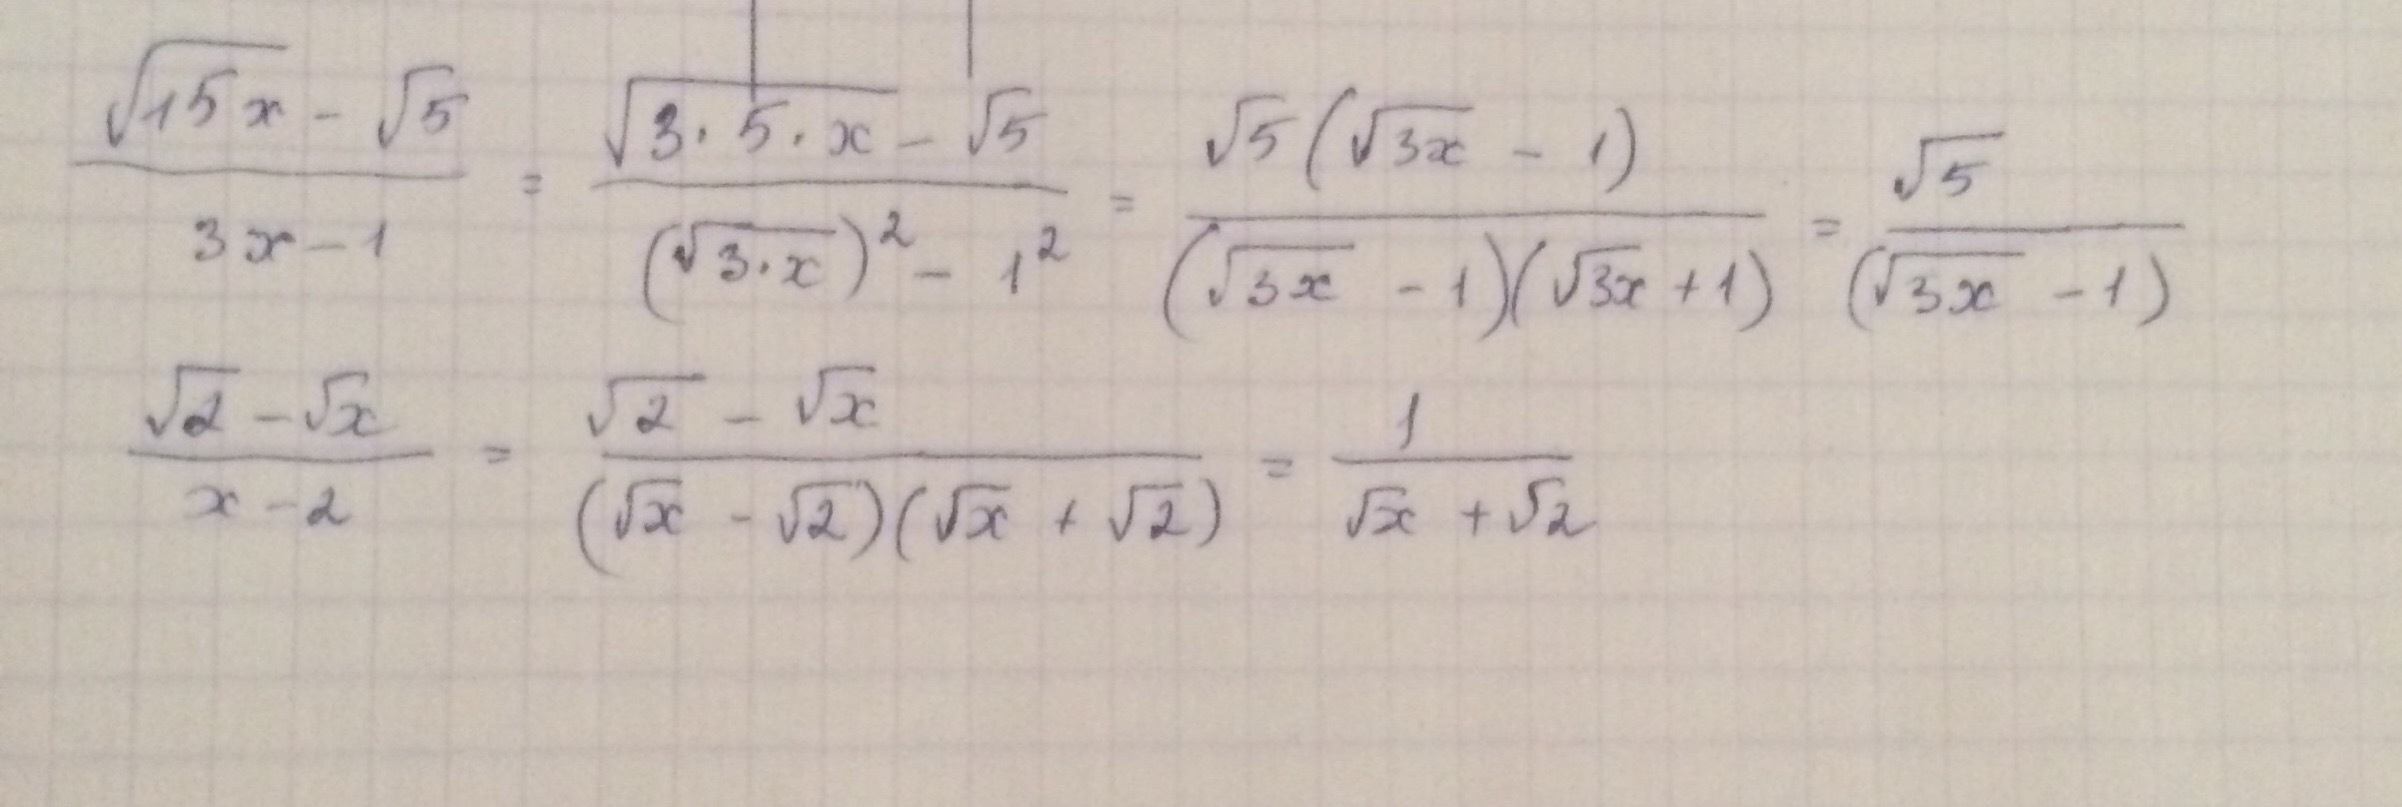 (√15x - √5)/(3x - 1) = (√(3·5·x) - √5)/((√(3·x))² - 1²) = √5(√3x - 1)/((√3x - 1)(√3x + 1)) = √5/(√3x - 1)
(√2 - √x)/(x - 2) = (√2 - √x)/((√x - √2)(√x + √2)) = 1/(√x + √2)